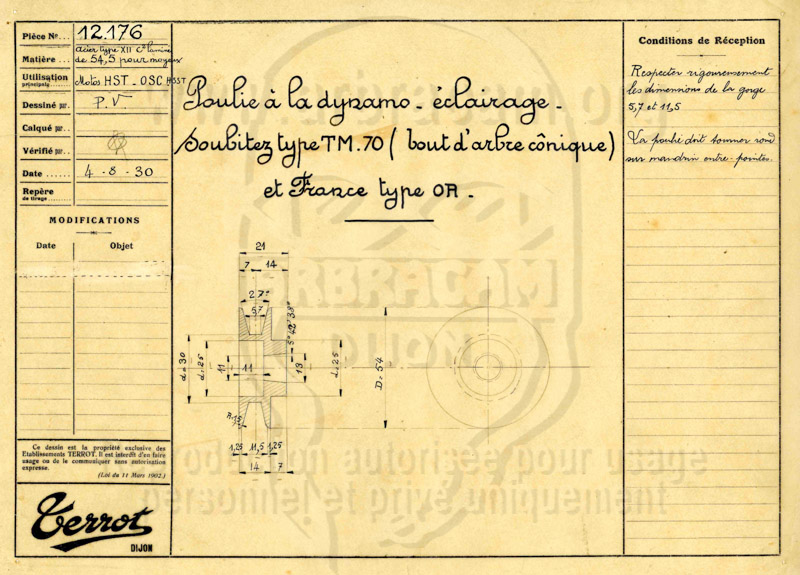 Pièce Nº... 12.176
Matière... acier type XII Cº laminé
de 54,5 pour moyeu
Utilisation principale... Motos HST - OSC HSST
Dessiné par. P.V
Calqué par..
Vérifié par..
Date ...... 4 - 8 - 30
Repère de tirage...
MODIFICATIONS
Date Objet
Ce dessin est la propriété exclusive des
Etablissements TERROT. Il est interdit d'en faire
usage ou de le communiquer sans autorisation
expresse.
(Loi du 11 Mars 1902.)
Terrot
DIJON
Poulie à la dynamo - éclairage -
Soubitez type TM.70 ( bout d'arbre cônique )
et France type OR -
21
7 14
27°
5,7
5° 42' 38"
d=30
d=25
11
11
13
d=25
D=54
R=1,5
1,25 11,5 1,25
14 7
Conditions de Réception
Respecter rigoureusement
les dimensions de la gorge
5,7 et 11,5
La poulie doit tourner rond
sur mandrin entre-pointes.
ARBRACAM
DIJON
Reproduction autorisée pour usage
personnel et privé uniquement